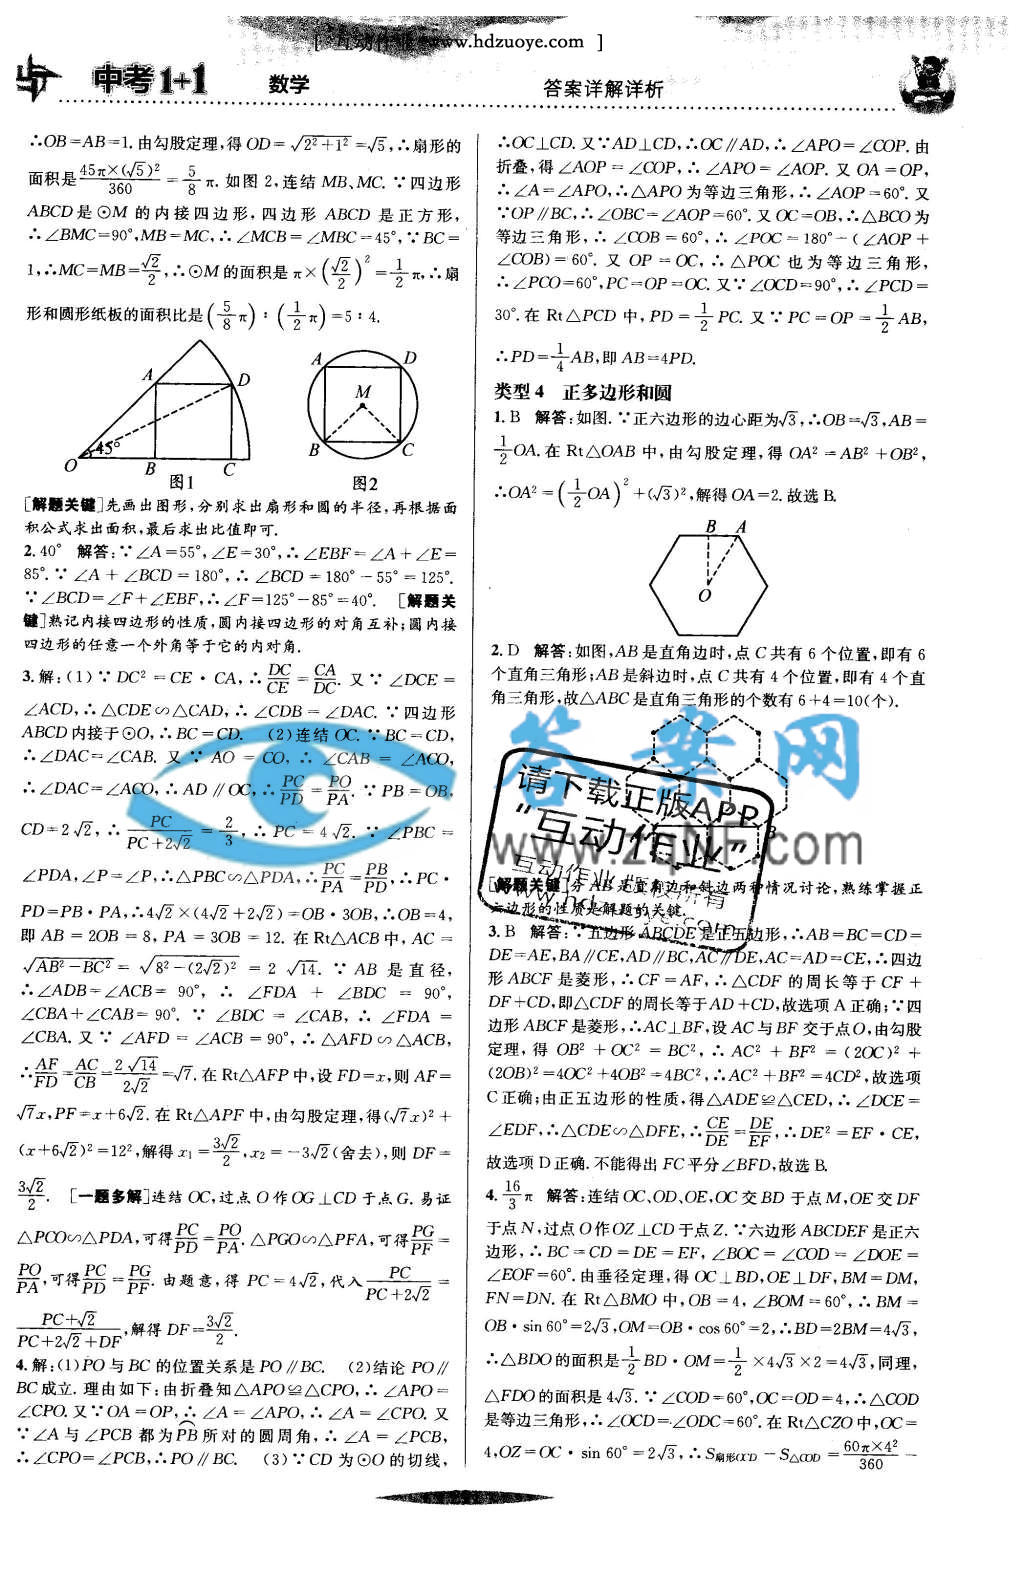 [ 互动作业 www.hdzuoye.com ]
中考1+1 数学 答案详解详析
∴OB=AB=1.由勾股定理,得OD=√(2²+1²)=√5,∴扇形的
面积是45π×(√5)²/360=5/8π.如图2,连结MB、MC.∵四边形
ABCD是⊙M的内接四边形,四边形ABCD是正方形,
∴∠BMC=90°,MB=MC,∴∠MCB=∠MBC=45°,∵BC=
1,∴MC=MB=√2/2,∴⊙M的面积是π×(√2/2)²=1/2π,∴扇
形和圆形纸板的面积比是(5/8π)∶(1/2π)=5∶4.
A D O 45° B C 图1
A D M B C 图2
[解题关键]先画出图形,分别求出扇形和圆的半径,再根据面
积公式求出面积,最后求出比值即可.
2.40° 解答:∵∠A=55°,∠E=30°,∴∠EBF=∠A+∠E=
85°.∵∠A+∠BCD=180°,∴∠BCD=180°-55°=125°.
∵∠BCD=∠F+∠EBF,∴∠F=125°-85°=40°. [解题关
键]熟记内接四边形的性质,圆内接四边形的对角互补;圆内接
四边形的任意一个外角等于它的内对角.
3.解:(1)∵DC²=CE·CA,∴DC/CE=CA/DC.又∵∠DCE=
∠ACD,∴△CDE∽△CAD,∴∠CDB=∠DAC.∵四边形
ABCD内接于⊙O,∴BC=CD. (2)连结OC.∵BC=CD,
∴∠DAC=∠CAB.又∵AO=CO,∴∠CAB=∠ACO,
∴∠DAC=∠ACO,∴AD∥OC,∴PC/PD=PO/PA.∵PB=OB,
CD=2√2,∴PC/(PC+2√2)=2/3,∴PC=4√2.∵∠PBC=
∠PDA,∠P=∠P,∴△PBC∽△PDA,∴PC/PA=PB/PD,∴PC·
PD=PB·PA,∴4√2×(4√2+2√2)=OB·3OB,∴OB=4,
即AB=2OB=8,PA=3OB=12.在Rt△ACB中,AC=
√(AB²-BC²)=√(8²-(2√2)²)=2√14.∵AB是直径,
∴∠ADB=∠ACB=90°,∴∠FDA+∠BDC=90°,
∠CBA+∠CAB=90°.∵∠BDC=∠CAB,∴∠FDA=
∠CBA.又∵∠AFD=∠ACB=90°,∴△AFD∽△ACB,
∴AF/FD=AC/CB=2√14/2√2=√7.在Rt△AFP中,设FD=x,则AF=
√7x,PF=x+6√2.在Rt△APF中,由勾股定理,得(√7x)²+
(x+6√2)²=12²,解得x₁=3√2/2,x₂=-3√2(舍去),则DF=
3√2/2. [一题多解]连结OC,过点O作OG⊥CD于点G.易证
△PCO∽△PDA,可得PC/PD=PO/PA.△PGO∽△PFA,可得PG/PF=
PO/PA,可得PC/PD=PG/PF.由题意,得PC=4√2,代入PC/(PC+2√2)=
(PC+√2)/(PC+2√2+DF),解得DF=3√2/2.
4.解:(1)PO与BC的位置关系是PO∥BC. (2)结论PO∥
BC成立.理由如下:由折叠知△APO≌△CPO,∴∠APO=
∠CPO.又∵OA=OP,∴∠A=∠APO,∴∠A=∠CPO.又
∵∠A与∠PCB都为PB所对的圆周角,∴∠A=∠PCB,
∴∠CPO=∠PCB,∴PO∥BC. (3)∵CD为⊙O的切线,
∴OC⊥CD.又∵AD⊥CD,∴OC∥AD,∴∠APO=∠COP.由
折叠,得∠AOP=∠COP,∴∠APO=∠AOP.又OA=OP,
∴∠A=∠APO,∴△APO为等边三角形,∴∠AOP=60°.又
∵OP∥BC,∴∠OBC=∠AOP=60°.又OC=OB,∴△BCO为
等边三角形,∴∠COB=60°,∴∠POC=180°-(∠AOP+
∠COB)=60°.又OP=OC,∴△POC也为等边三角形,
∴∠PCO=60°,PC=OP=OC.又∵∠OCD=90°,∴∠PCD=
30°.在Rt△PCD中,PD=1/2PC.又∵PC=OP=1/2AB,
∴PD=1/4AB,即AB=4PD.
类型4 正多边形和圆
1.B 解答:如图.∵正六边形的边心距为√3,∴OB=√3,AB=
1/2OA.在Rt△OAB中,由勾股定理,得OA²=AB²+OB²,
∴OA²=(1/2OA)²+(√3)²,解得OA=2.故选B.
B A O
2.D 解答:如图,AB是直角边时,点C共有6个位置,即有6
个直角三角形;AB是斜边时,点C共有4个位置,即有4个直
角三角形,故△ABC是直角三角形的个数有6+4=10(个).
答案网
www.zqNF.com
请下载正版APP
“互动作业”
互动作业 版权所有
B
[解题关键]分AB是直角边和斜边两种情况讨论,熟练掌握正
六边形的性质是解题的关键.
3.B 解答:∵五边形ABCDE是正五边形,∴AB=BC=CD=
DE=AE,BA∥CE,AD∥BC,AC∥DE,AC=AD=CE,∴四边
形ABCF是菱形,∴CF=AF,∴△CDF的周长等于CF+
DF+CD,即△CDF的周长等于AD+CD,故选项A正确;∵四
边形ABCF是菱形,∴AC⊥BF,设AC与BF交于点O,由勾股
定理,得OB²+OC²=BC²,∴AC²+BF²=(2OC)²+
(2OB)²=4OC²+4OB²=4BC²,∴AC²+BF²=4CD²,故选项
C正确;由正五边形的性质,得△ADE≌△CED,∴∠DCE=
∠EDF,∴△CDE∽△DFE,∴CE/DE=DE/EF,∴DE²=EF·CE,
故选项D正确.不能得出FC平分∠BFD,故选B.
4.16/3π 解答:连结OC、OD、OE,OC交BD于点M,OE交DF
于点N,过点O作OZ⊥CD于点Z.∵六边形ABCDEF是正六
边形,∴BC=CD=DE=EF,∠BOC=∠COD=∠DOE=
∠EOF=60°.由垂径定理,得OC⊥BD,OE⊥DF,BM=DM,
FN=DN.在Rt△BMO中,OB=4,∠BOM=60°,∴BM=
OB·sin60°=2√3,OM=OB·cos60°=2,∴BD=2BM=4√3,
∴△BDO的面积是1/2BD·OM=1/2×4√3×2=4√3,同理,
△FDO的面积是4√3.∵∠COD=60°,OC=OD=4,∴△COD
是等边三角形,∴∠OCD=∠ODC=60°.在Rt△CZO中,OC=
4,OZ=OC·sin60°=2√3,∴S扇形OCD-S△COD=60π×4²/360-